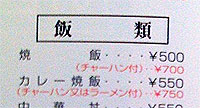 飯類
焼飯････¥500
(チャーハン付)･･¥700
カレー焼飯･･¥550
(チャーハン又はラーメン付)･･¥750
中華丼････¥550